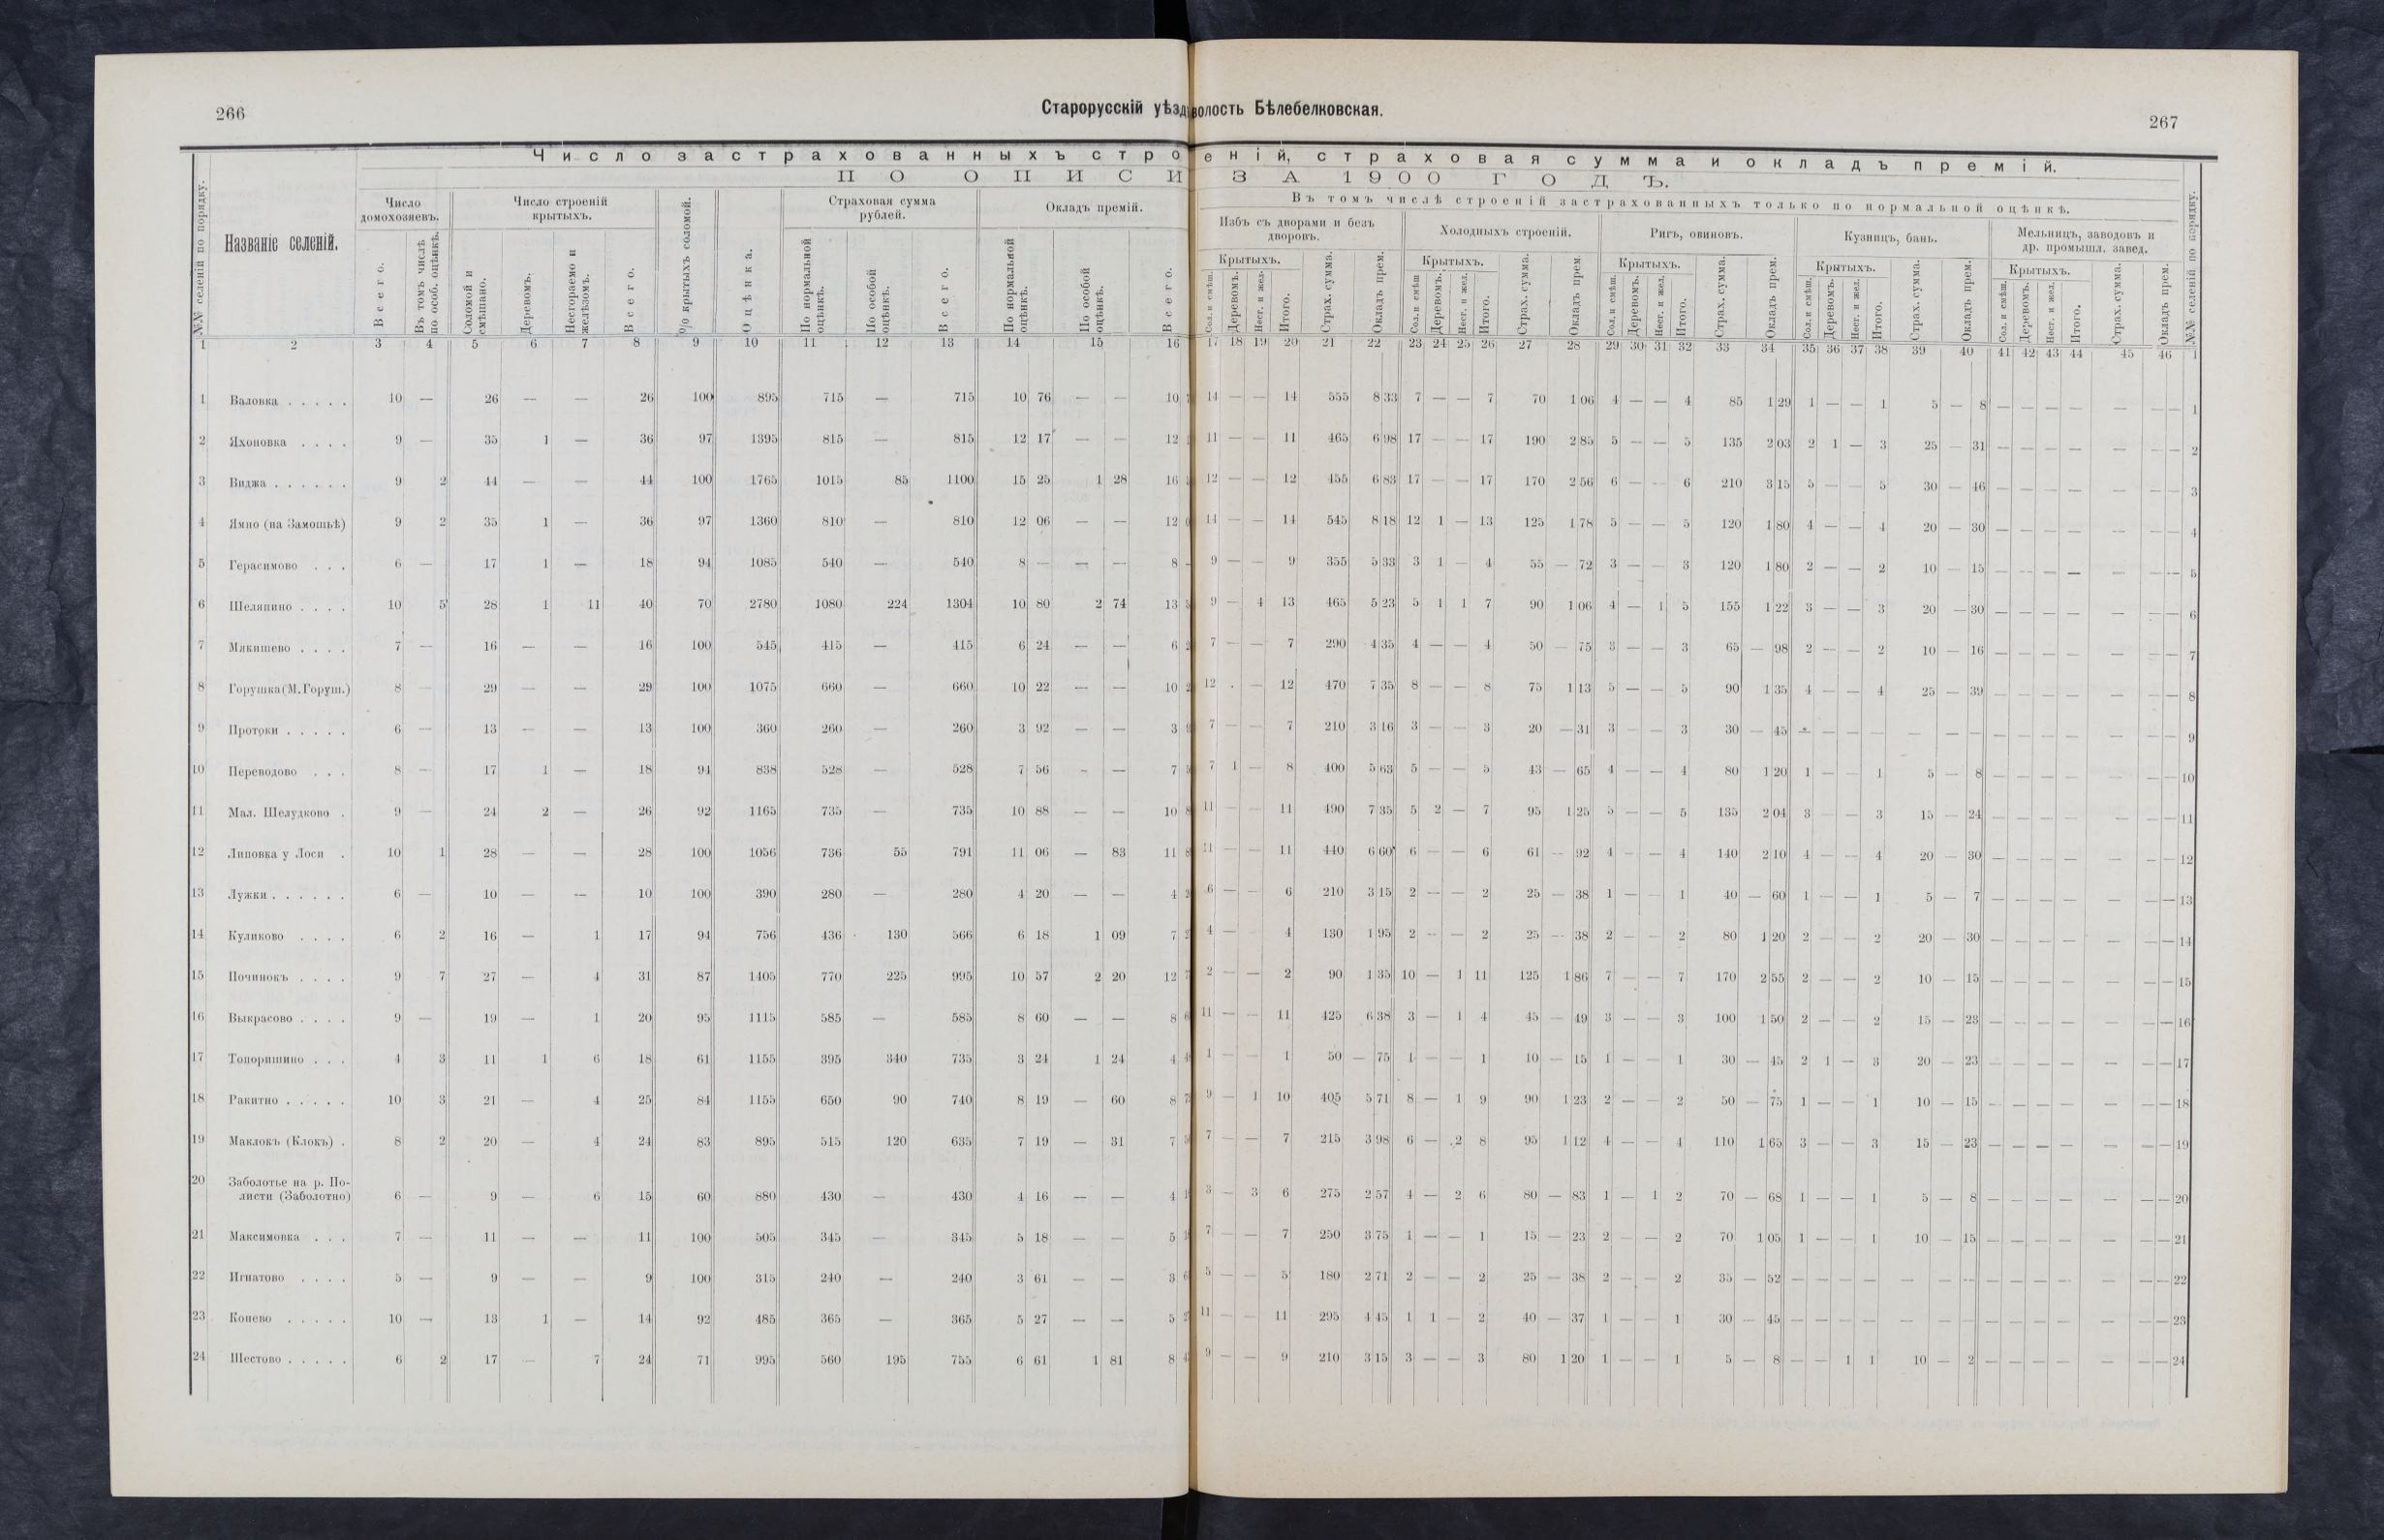 266
Старорусскій уѣзд
волость Бѣлебелковская.
267
Число застрахованныхъ строеній, страховая сумма и окладъ премій.
ПО ОПИСИ ЗА 1900 ГОДЪ.
№№ селеній по порядку.
Названіе селеній.
Число домохозяевъ.
Всего.
Въ томъ числѣ по особ. оцѣнкѣ.
Число строеній крытыхъ.
Соломой и смѣшано.
Деревомъ.
Несгораемо и желѣзомъ.
Всего.
% крытыхъ соломой.
Оцѣнка.
Страховая сумма рублей.
По нормальной оцѣнкѣ.
По особой оцѣнкѣ.
Всего.
Окладъ премій.
По нормальной оцѣнкѣ.
По особой оцѣнкѣ.
Всего.
Въ томъ числѣ строеній застрахованныхъ только по нормальной оцѣнкѣ.
Избъ съ дворами и безъ дворовъ.
Крытыхъ.
Сол. и смѣш.
Деревомъ.
Несг. и жел.
Итого.
Страх. сумма.
Окладъ прем.
Холодныхъ строеній.
Крытыхъ.
Сол. и смѣш
Деревомъ.
Несг. и жел.
Итого.
Страх. сумма.
Окладъ прем.
Ригъ, овиновъ.
Крытыхъ.
Сол. и смѣш.
Деревомъ.
Несг. и жел.
Итого.
Страх. сумма.
Окладъ прем.
Кузницъ, бань.
Крытыхъ.
Сол. и смѣш.
Деревомъ.
Несг. и жел.
Итого.
Страх. сумма.
Окладъ прем.
Мельницъ, заводовъ и др. промышл. завед.
Крытыхъ.
Сол. и смѣш.
Деревомъ.
Несг. и жел.
Итого.
Страх. сумма.
Окладъ прем.
№№ селеній по порядку.
1 2 3 4 5 6 7 8 9 10 11 12 13 14 15 16 17 18 19 20 21 22 23 24 25 26 27 28 29 30 31 32 33 34 35 36 37 38 39 40 41 42 43 44 45 46 1
1 Валовка . . . . . 10 — 26 — — 26 100 895 715 — 715 10 76 — — 10 14 — — 14 555 8 33 7 — — 7 70 1 06 4 — — 4 85 1 29 1 — — 1 5 — 8 — — — — — — — 1
2 Яхоновка . . . . 9 — 35 1 — 36 97 1395 815 — 815 12 17 — — 12 11 — — 11 465 6 98 17 — — 17 190 2 85 5 — — 5 135 2 03 2 1 — 3 25 — 31 — — — — — — — 2
3 Виджа . . . . . . 9 2 44 — — 44 100 1765 1015 85 1100 15 25 1 28 16 12 — — 12 455 6 83 17 — — 17 170 2 56 6 — — 6 210 3 15 5 — — 5 30 — 46 — — — — — — — 3
4 Ямно (на Замошьѣ) 9 2 35 1 — 36 97 1360 810 — 810 12 06 — — 12 14 — — 14 545 8 18 12 1 — 13 125 1 78 5 — — 5 120 1 80 4 — — 4 20 — 30 — — — — — — — 4
5 Герасимово . . . 6 — 17 1 — 18 94 1085 540 — 540 8 — — — 8 9 — — 9 355 5 33 3 1 — 4 55 — 72 3 — — 3 120 1 80 2 — — 2 10 — 15 — — — — — — — 5
6 Шеляпино . . . . 10 5 28 1 11 40 70 2780 1080 224 1304 10 80 2 74 13 9 — 4 13 465 5 23 5 1 1 7 90 1 06 4 — 1 5 155 1 22 3 — — 3 20 — 30 — — — — — — — 6
7 Мякишево . . . . 7 — 16 — — 16 100 545 415 — 415 6 24 — — 6 7 — — 7 290 4 35 4 — — 4 50 — 75 3 — — 3 65 — 98 2 — — 2 10 — 16 — — — — — — — 7
8 Горушка (М. Горуш.) 8 — 29 — — 29 100 1075 660 — 660 10 22 — — 10 12 . — 12 470 7 35 8 — — 8 75 1 13 5 — — 5 90 1 35 4 — — 4 25 — 39 — — — — — — — 8
9 Протоки . . . . . 6 — 13 — — 13 100 360 260 — 260 3 92 — — 3 7 — — 7 210 3 16 3 — — 3 20 — 31 3 — — 3 30 — 45 — — — — — — — — — — — — — — 9
10 Переводово . . . 8 — 17 1 — 18 94 838 528 — 528 7 56 — — 7 7 1 — 8 400 5 63 5 — — 5 43 — 65 4 — — 4 80 1 20 1 — — 1 5 — 8 — — — — — — — 10
11 Мал. Шелудково . 9 — 24 2 — 26 92 1165 735 — 735 10 88 — — 10 11 — — 11 490 7 35 5 2 — 7 95 1 25 5 — — 5 135 2 04 3 — — 3 15 — 24 — — — — — — — 11
12 Липовка у Лоси . 10 1 28 — — 28 100 1056 736 55 791 11 06 — 83 11 11 — — 11 440 6 60 6 — — 6 61 — 92 4 — — 4 140 2 10 4 — — 4 20 — 30 — — — — — — — 12
13 Лужки . . . . . . 6 — 10 — — 10 100 390 280 — 280 4 20 — — 4 6 — — 6 210 3 15 2 — — 2 25 — 38 1 — — 1 40 — 60 1 — — 1 5 — 7 — — — — — — — 13
14 Куликово . . . . 6 2 16 — 1 17 94 756 436 130 566 6 18 1 09 7 4 — — 4 130 1 95 2 — — 2 25 — 38 2 — — 2 80 1 20 2 — — 2 20 — 30 — — — — — — — 14
15 Починокъ . . . . 9 7 27 — 4 31 87 1405 770 225 995 10 57 2 20 12 2 — — 2 90 1 35 10 — 1 11 125 1 86 7 — — 7 170 2 55 2 — — 2 10 — 15 — — — — — — — 15
16 Выкрасово . . . . 9 — 19 — 1 20 95 1115 585 — 585 8 60 — — 8 11 — — 11 425 6 38 3 — 1 4 45 — 49 3 — — 3 100 1 50 2 — — 2 15 — 23 — — — — — — — 16
17 Топоришино . . . 4 3 11 1 6 18 61 1155 395 340 735 3 24 1 24 4 1 — — 1 50 — 75 1 — — 1 10 — 15 1 — — 1 30 — 45 2 1 — 3 20 — 23 — — — — — — — 17
18 Ракитно . . . . . 10 3 21 — 4 25 84 1155 650 90 740 8 19 — 60 8 9 — 1 10 405 5 71 8 — 1 9 90 1 23 2 — — 2 50 — 75 1 — — 1 10 — 15 — — — — — — — 18
19 Маклокъ (Клокъ) . 8 2 20 — 4 24 83 895 515 120 635 7 19 — 31 7 7 — — 7 215 3 98 6 — 2 8 95 1 12 4 — — 4 110 1 65 3 — — 3 15 — 23 — — — — — — — 19
20 Заболотье на р. По-
листи (Заболотно) 6 — 9 — 6 15 60 880 430 — 430 4 16 — — 4 3 — 3 6 275 2 57 4 — 2 6 80 — 83 1 — 1 2 70 — 68 1 — — 1 5 — 8 — — — — — — — 20
21 Максимовка . . . 7 — 11 — — 11 100 505 345 — 345 5 18 — — 5 7 — — 7 250 3 75 1 — — 1 15 — 23 2 — — 2 70 1 05 1 — — 1 10 — 15 — — — — — — — 21
22 Игнатово . . . . 5 — 9 — — 9 100 315 240 — 240 3 61 — — 3 5 — — 5 180 2 71 2 — — 2 25 — 38 2 — — 2 35 — 52 — — — — — — — — — — — — — — 22
23 Конево . . . . . 10 — 13 1 — 14 92 485 365 — 365 5 27 — — 5 11 — — 11 295 4 45 1 1 — 2 40 — 37 1 — — 1 30 — 45 — — — — — — — — — — — — — — 23
24 Шестово . . . . . 6 2 17 — 7 24 71 995 560 195 755 6 61 1 81 8 9 — — 9 210 3 15 3 — — 3 80 1 20 1 — — 1 5 — 8 — — 1 1 10 — 2 — — — — — — — 24